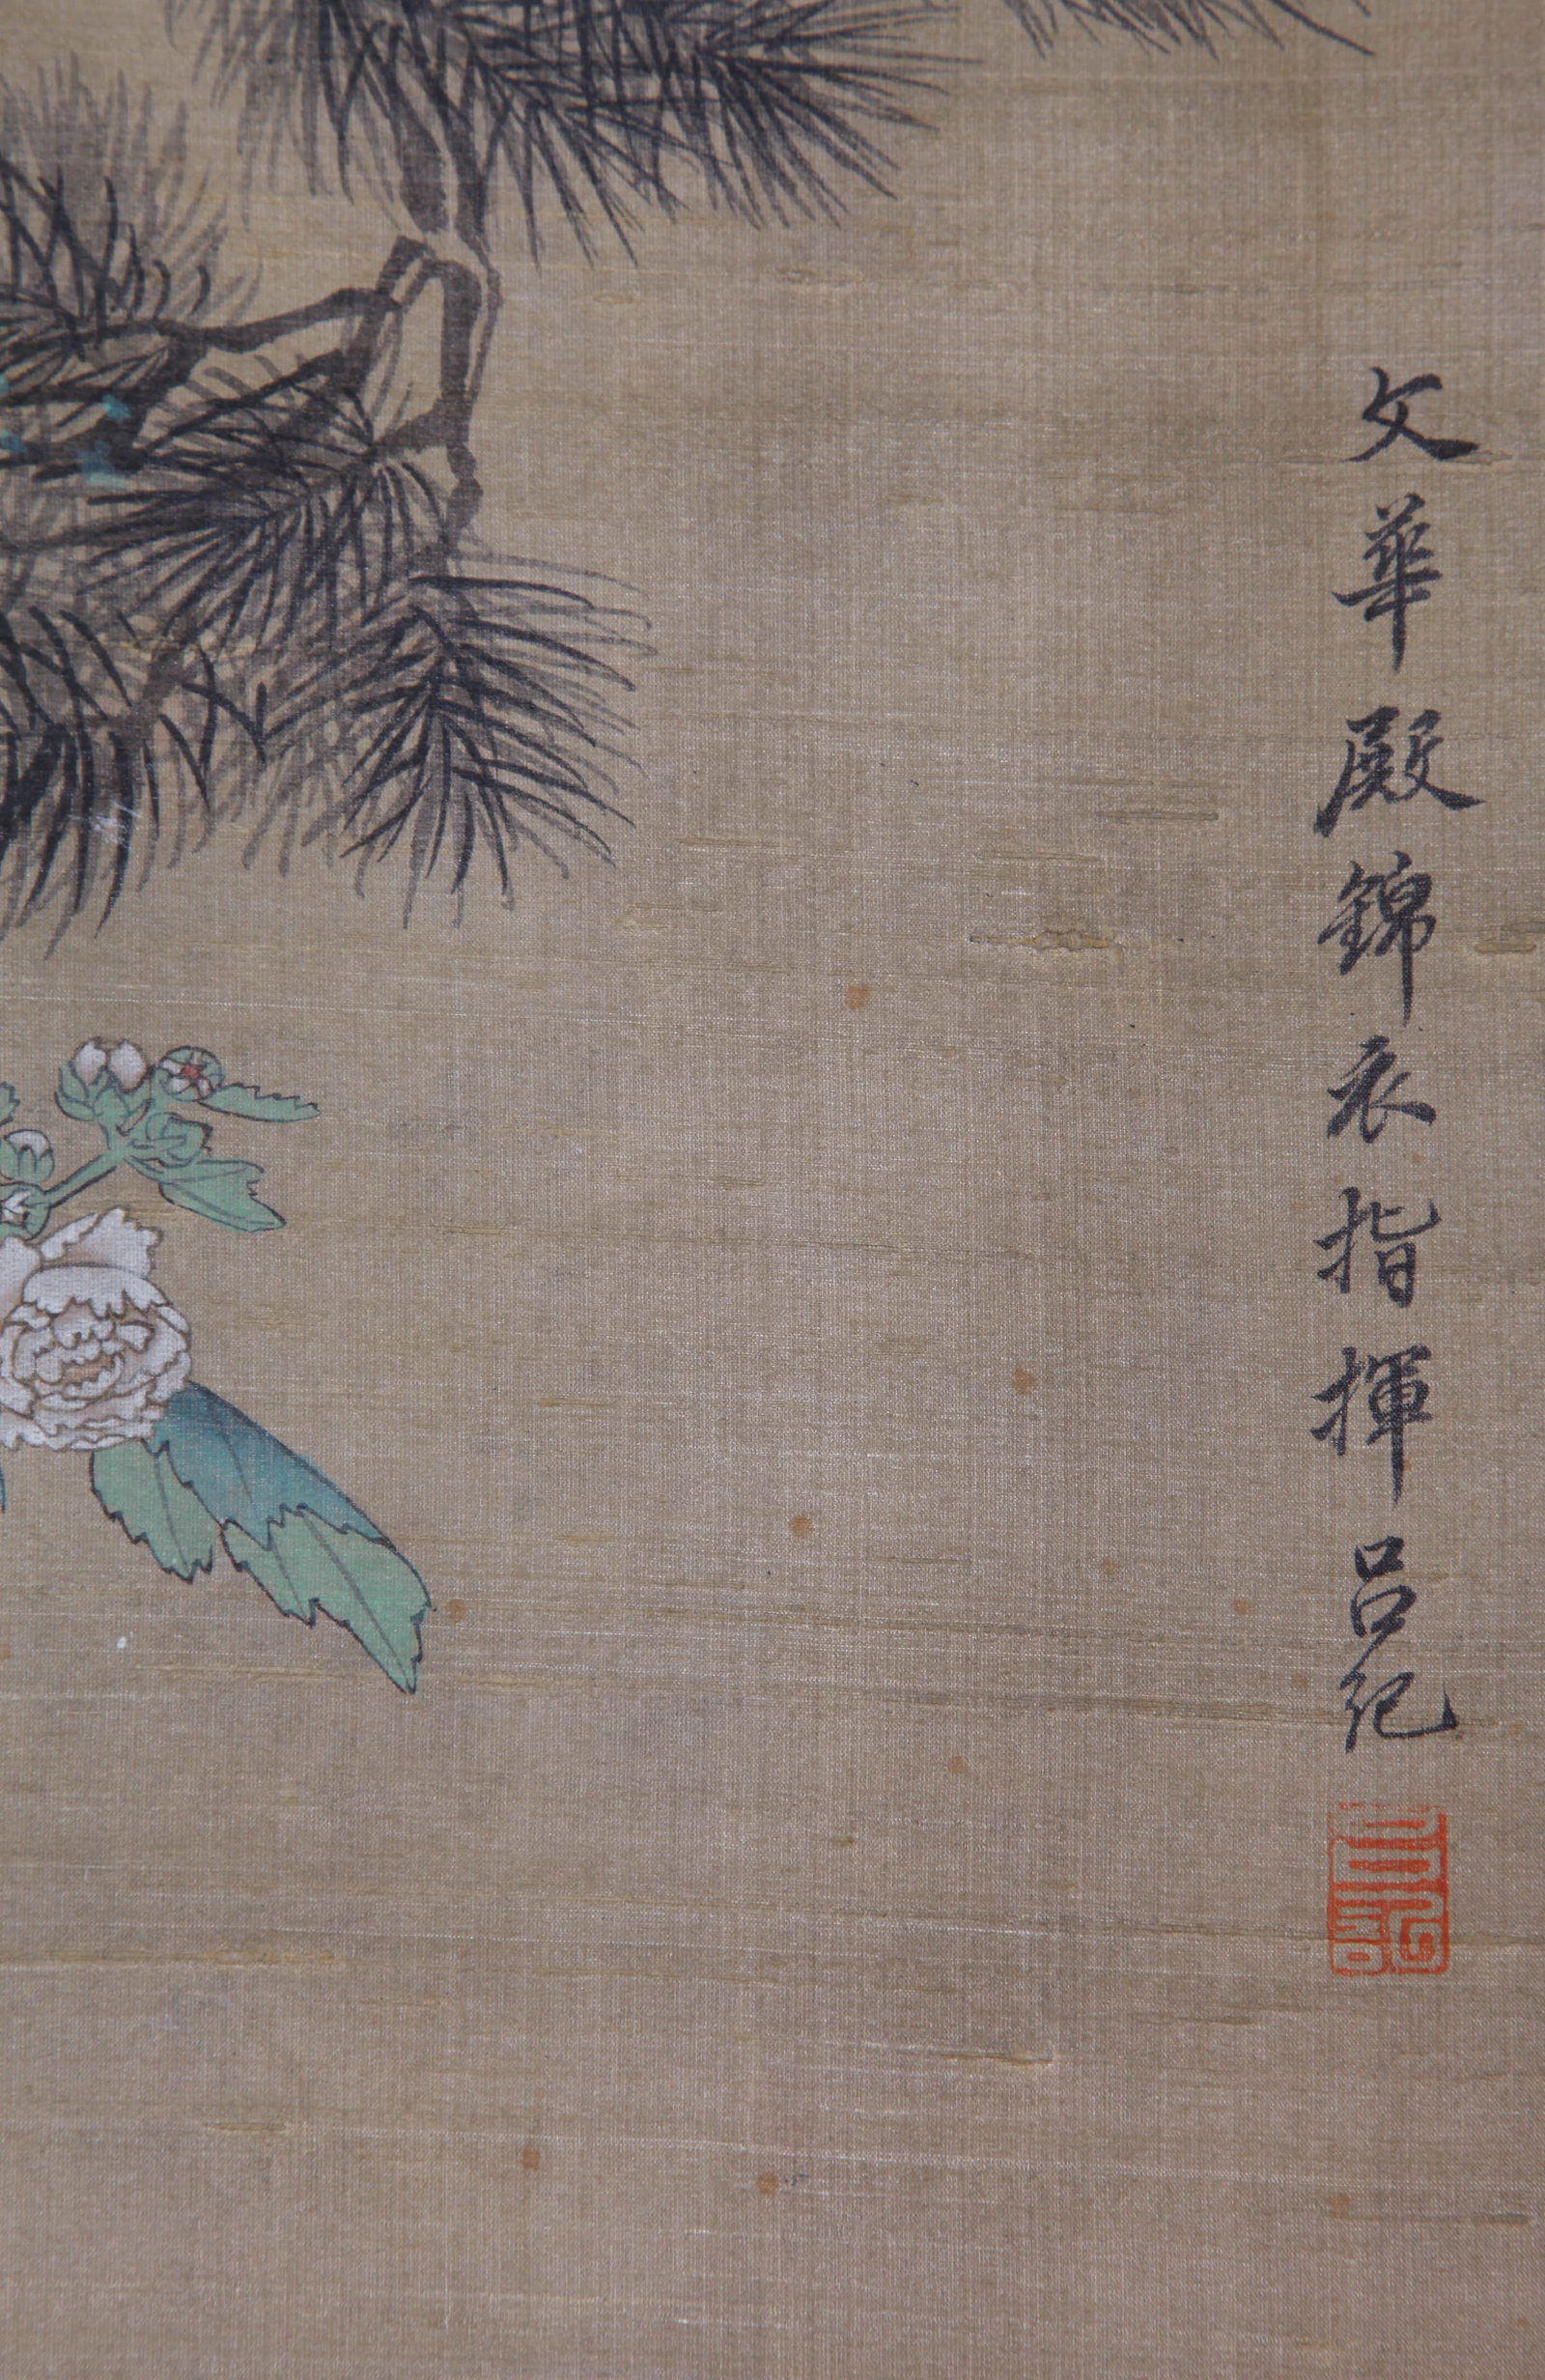 文華殿錦衣指揮呂紀